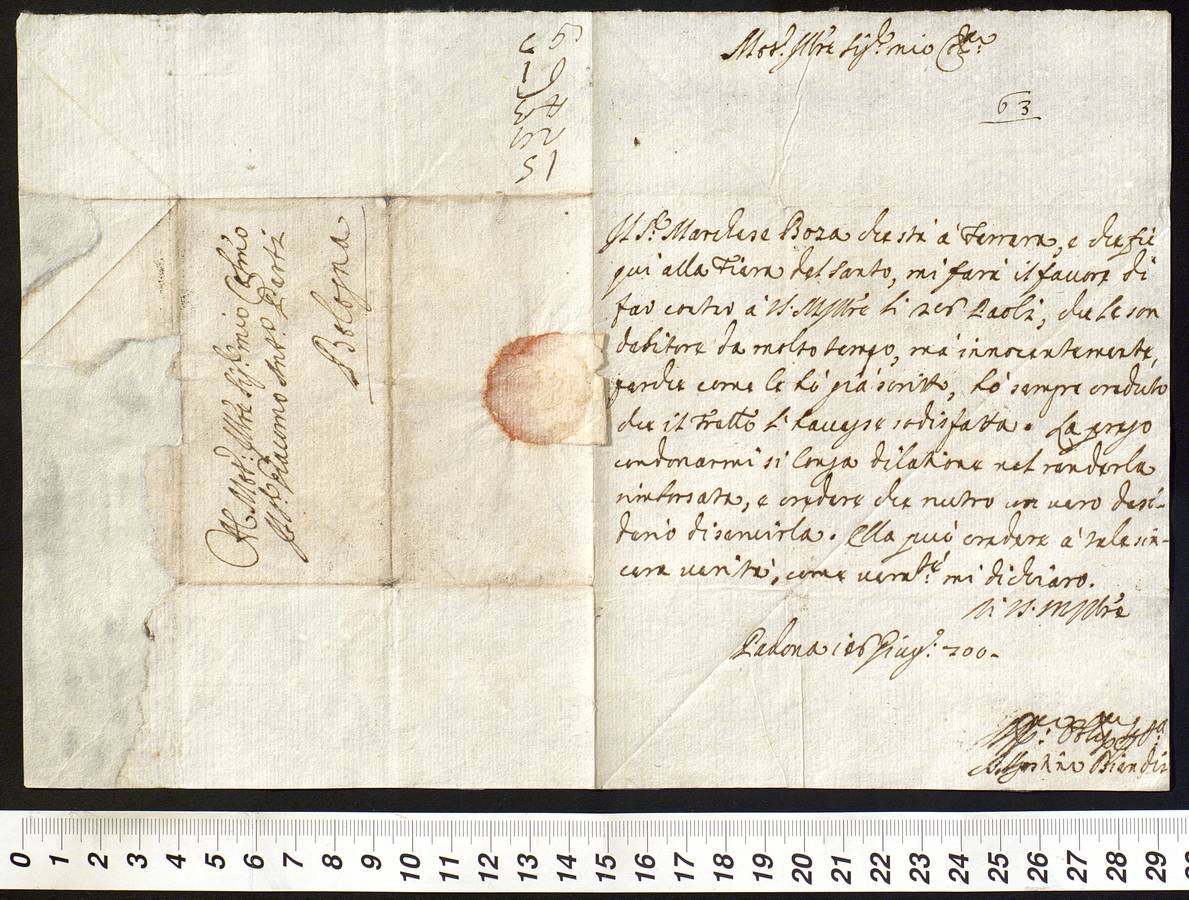 Mol. Ill.re Sig.r mio
63
Il S.r Marchese Boza che stà à Ferrara, e che fù
qui alla Fiera del Santo, mi farà il favore di
far costì à V.S. M. Ill.re li Paoli, che le son
debitore da molto tempo, mà innocentemente,
perche come le hò già scritto, hò sempre creduto
che il Fratto li havesse sodisfatta. La prego
condonarmi si longa dilatione nel renderla
rimborsata, e credere che nutro un vero desi-
derio di servirla. Ella può credere à tale sin-
cera verità, come vera.te mi dichiaro.
Di V.S. M Ill.re
Padova Giug. 700.
Bologna
Al Mol. Ill.re Sig.r mio
Il Sig.r Giacomo Ant.o Perti
0 1 2 3 4 5 6 7 8 9 10 11 12 13 14 15 16 17 18 19 20 21 22 23 24 25 26 27 28 29